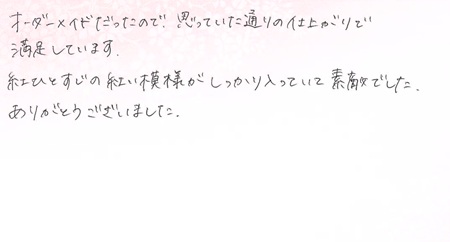 オーダーメイドだったので、思っていた通りの仕上がりで
満足しています.
紅ひとすじの紅い模様がしっかり入っていて素敵でした.
ありがとうございました.